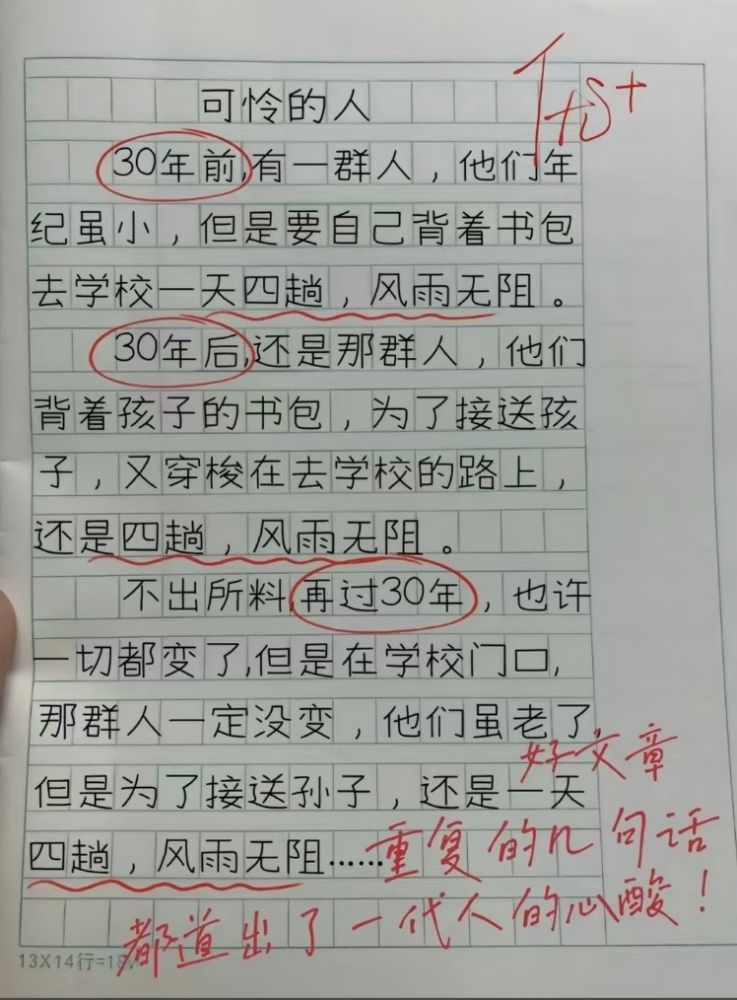 可怜的人
优+
30年前,有一群人，他们年
纪虽小，但是要自己背着书包
去学校一天四趟，风雨无阻。
30年后,还是那群人，他们
背着孩子的书包，为了接送孩
子，又穿梭在去学校的路上，
还是四趟，风雨无阻。
不出所料,再过30年，也许
一切都变了,但是在学校门口,
那群人一定没变，他们虽老了,
但是为了接送孙子，还是一天
四趟，风雨无阻……
好文章
重复的几句话
都道出了一代人的心酸！
13X14行=18